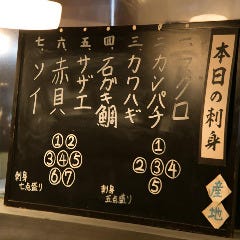 本日の刺身
産地
一、マグロ
二、カンパチ
三、カワハギ
四、石がき鯛
五、サザエ
六、赤貝
七、ソイ
①
②③④
⑤
刺身
五点盛り
①②
③④⑤
⑥⑦
刺身
七点盛り